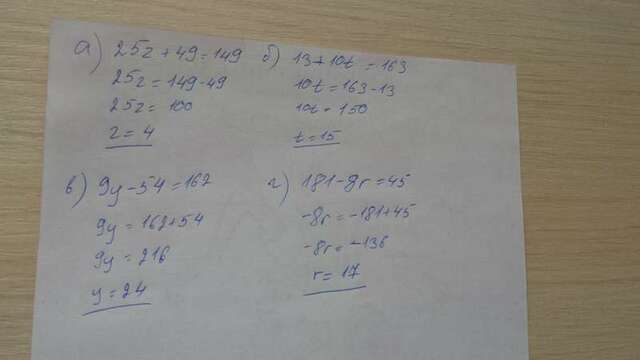 а) 25z + 49 = 149
25z = 149 - 49
25z = 100
z = 4
б) 13 + 10t = 163
10t = 163 - 13
10t = 150
t = 15
в) 9y - 54 = 162
9y = 162 + 54
9y = 216
y = 24
г) 181 - 8r = 45
-8r = -181 + 45
-8r = -136
r = 17